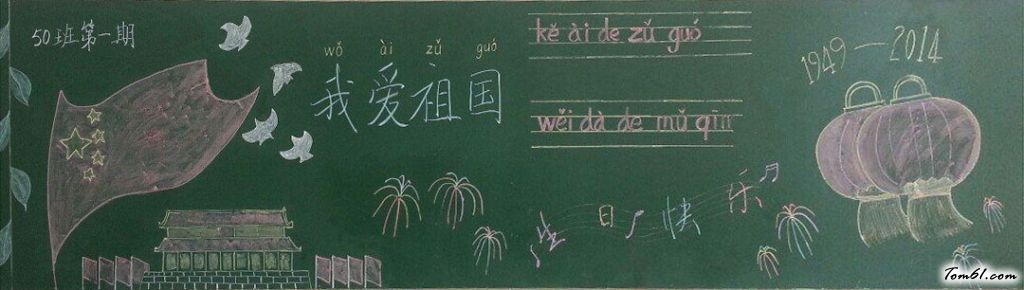 50班第一期
wǒ ài zǔ guó
我爱祖国
kě ài de zǔ guó
wěi dà de mǔ qīn
生日快乐
1949—2014
Tom61.com